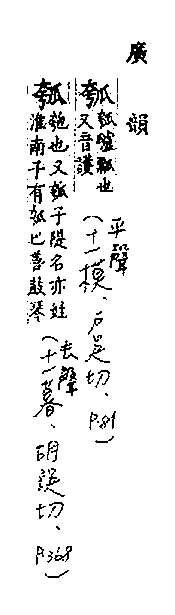 廣韻
瓠 瓠𤬛瓢也
又音護
(平聲
十一模、戶吳切、
P.81)
瓠 匏也又瓠子隄名亦姓
淮南子有瓠巴善鼓琴
(去聲
十一暮、胡誤切、
P.368)